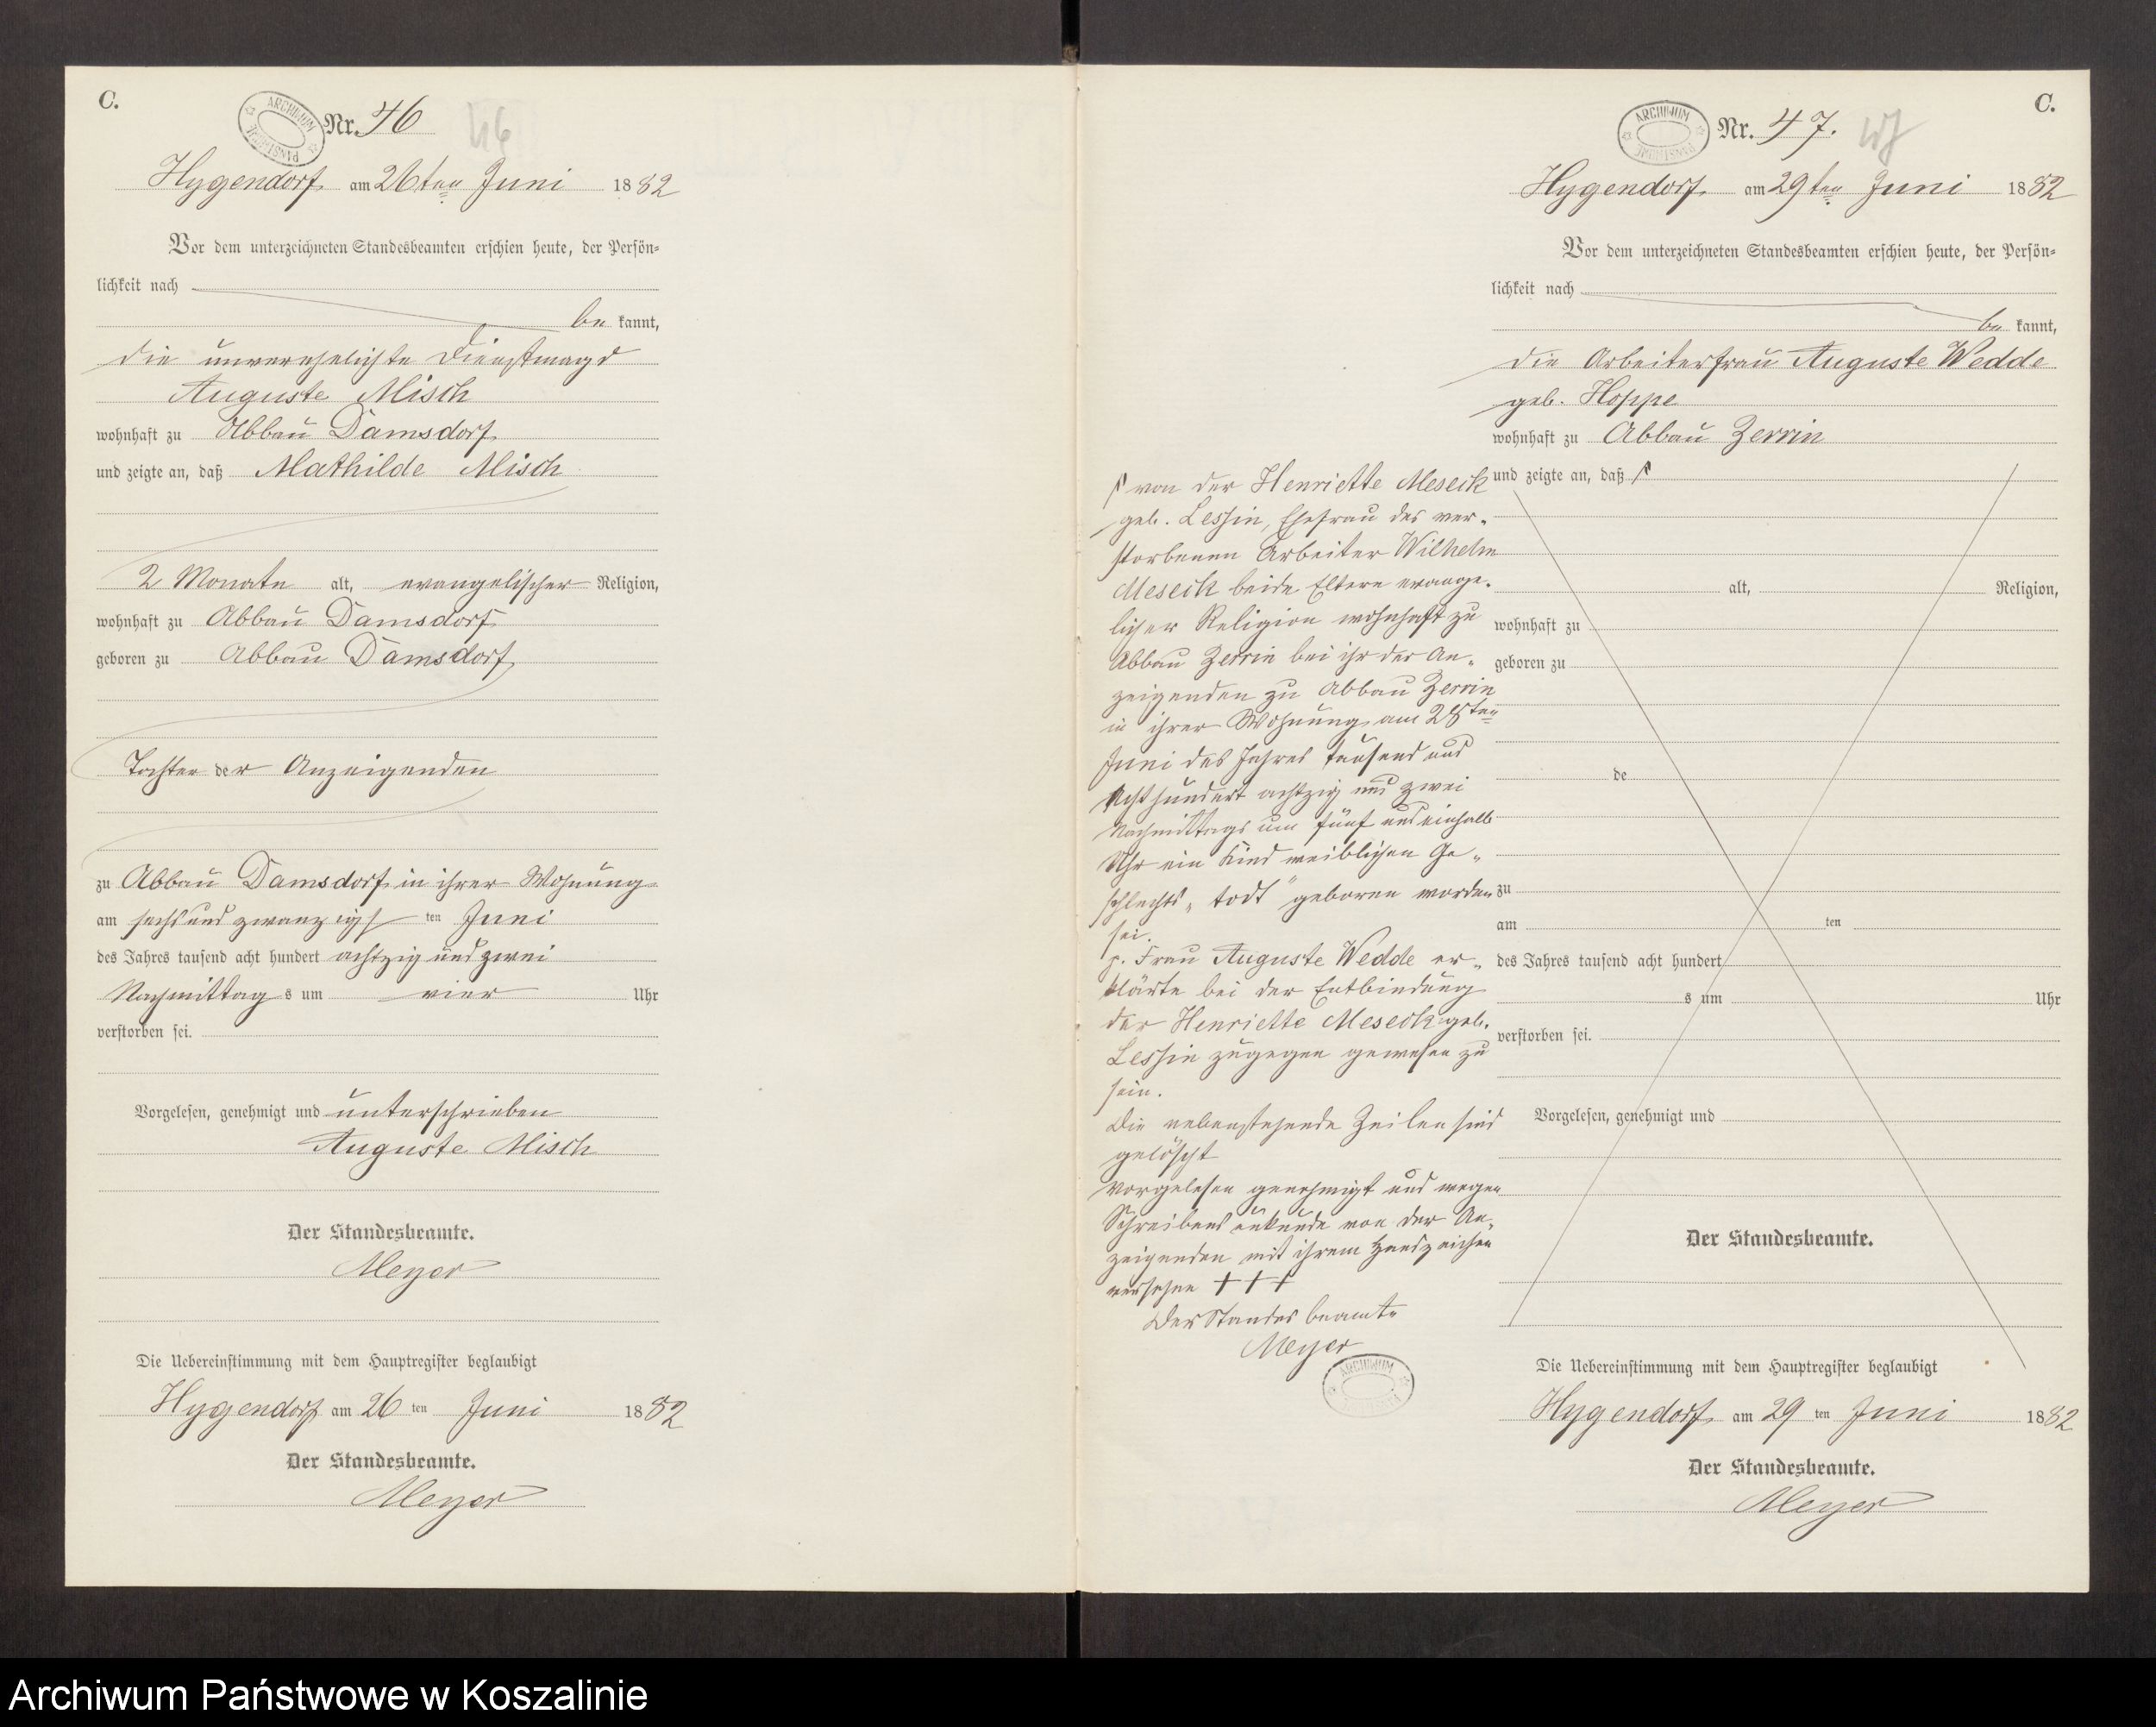 C.
ARCHIWUM PAŃSTWOWE
Nr. 46
46
Hygendorf am 26ten Juni 1882
Vor dem unterzeichneten Standesbeamten erschien heute, der Persön-
lichkeit nach
be kannt,
die unverehelichte Dienstmagd
Auguste Misch
wohnhaft zu Abbau Damsdorf
und zeigte an, daß Mathilde Misch
2 Monate alt, evangelischer Religion,
wohnhaft zu Abbau Damsdorf
geboren zu Abbau Damsdorf
Tochter der Anzeigenden
zu Abbau Damsdorf in ihrer Wohnung
am sechs und zwanzigsten Juni
des Jahres tausend acht hundert achtzig und zwei
Nachmittags um vier Uhr
verstorben sei.
Vorgelesen, genehmigt und unterschrieben
Auguste Misch
Der Standesbeamte.
Meyer
Die Uebereinstimmung mit dem Hauptregister beglaubigt
Hygendorf am 26 ten Juni 1882
Der Standesbeamte.
Meyer
C.
ARCHIWUM PAŃSTWOWE
Nr. 47.
47
Hygendorf am 29ten Juni 1882
Vor dem unterzeichneten Standesbeamten erschien heute, der Persön-
lichkeit nach
be kannt,
die Arbeiterfrau Auguste Wedde
geb. Hoppe
wohnhaft zu Abbau Zerrin
und zeigte an, daß
alt, Religion,
wohnhaft zu
geboren zu
de
zu
am ten
des Jahres tausend acht hundert
s um Uhr
verstorben sei.
Vorgelesen, genehmigt und
Der Standesbeamte.
von der Henriette Meseck
geb. Lessin, Ehefrau des ver-
storbenen Arbeiter Wilhelm
Meseck beide Eltern evange-
licher Religion wohnhaft zu
Abbau Zerrin bei ihr der An-
zeigenden zu Abbau Zerrin
in ihrer Wohnung am 28ten
Juni des Jahres tausend und
Acht hundert achtzig und zwei
Nachmittags um fünf und einhalb
Uhr ein Kind weiblichen Ge-
schlechts „todt" geboren worden
sei.
p. Frau Auguste Wedde er-
klärte bei der Entbindung
der Henriette Meseck geb.
Lessin zugegen gewesen zu
sein.
Die nebenstehende Zeilen sind
gelöscht
Vorgelesen genehmigt und wegen
Schreibens unkunde von der An-
zeigenden mit ihrem Handzeichen
versehen + + +
Der Standes beamte
Meyer
ARCHIWUM
Die Uebereinstimmung mit dem Hauptregister beglaubigt
Hygendorf am 29 ten Juni 1882
Der Standesbeamte.
Meyer
Archiwum Państwowe w Koszalinie